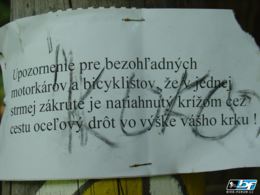 Upozornenie pre bezohľadných
motorkárov a bicyklistov, že v jednej
strmej zákrute je natiahnutý krížom cez
cestu oceľový drôt vo výške vášho krku !